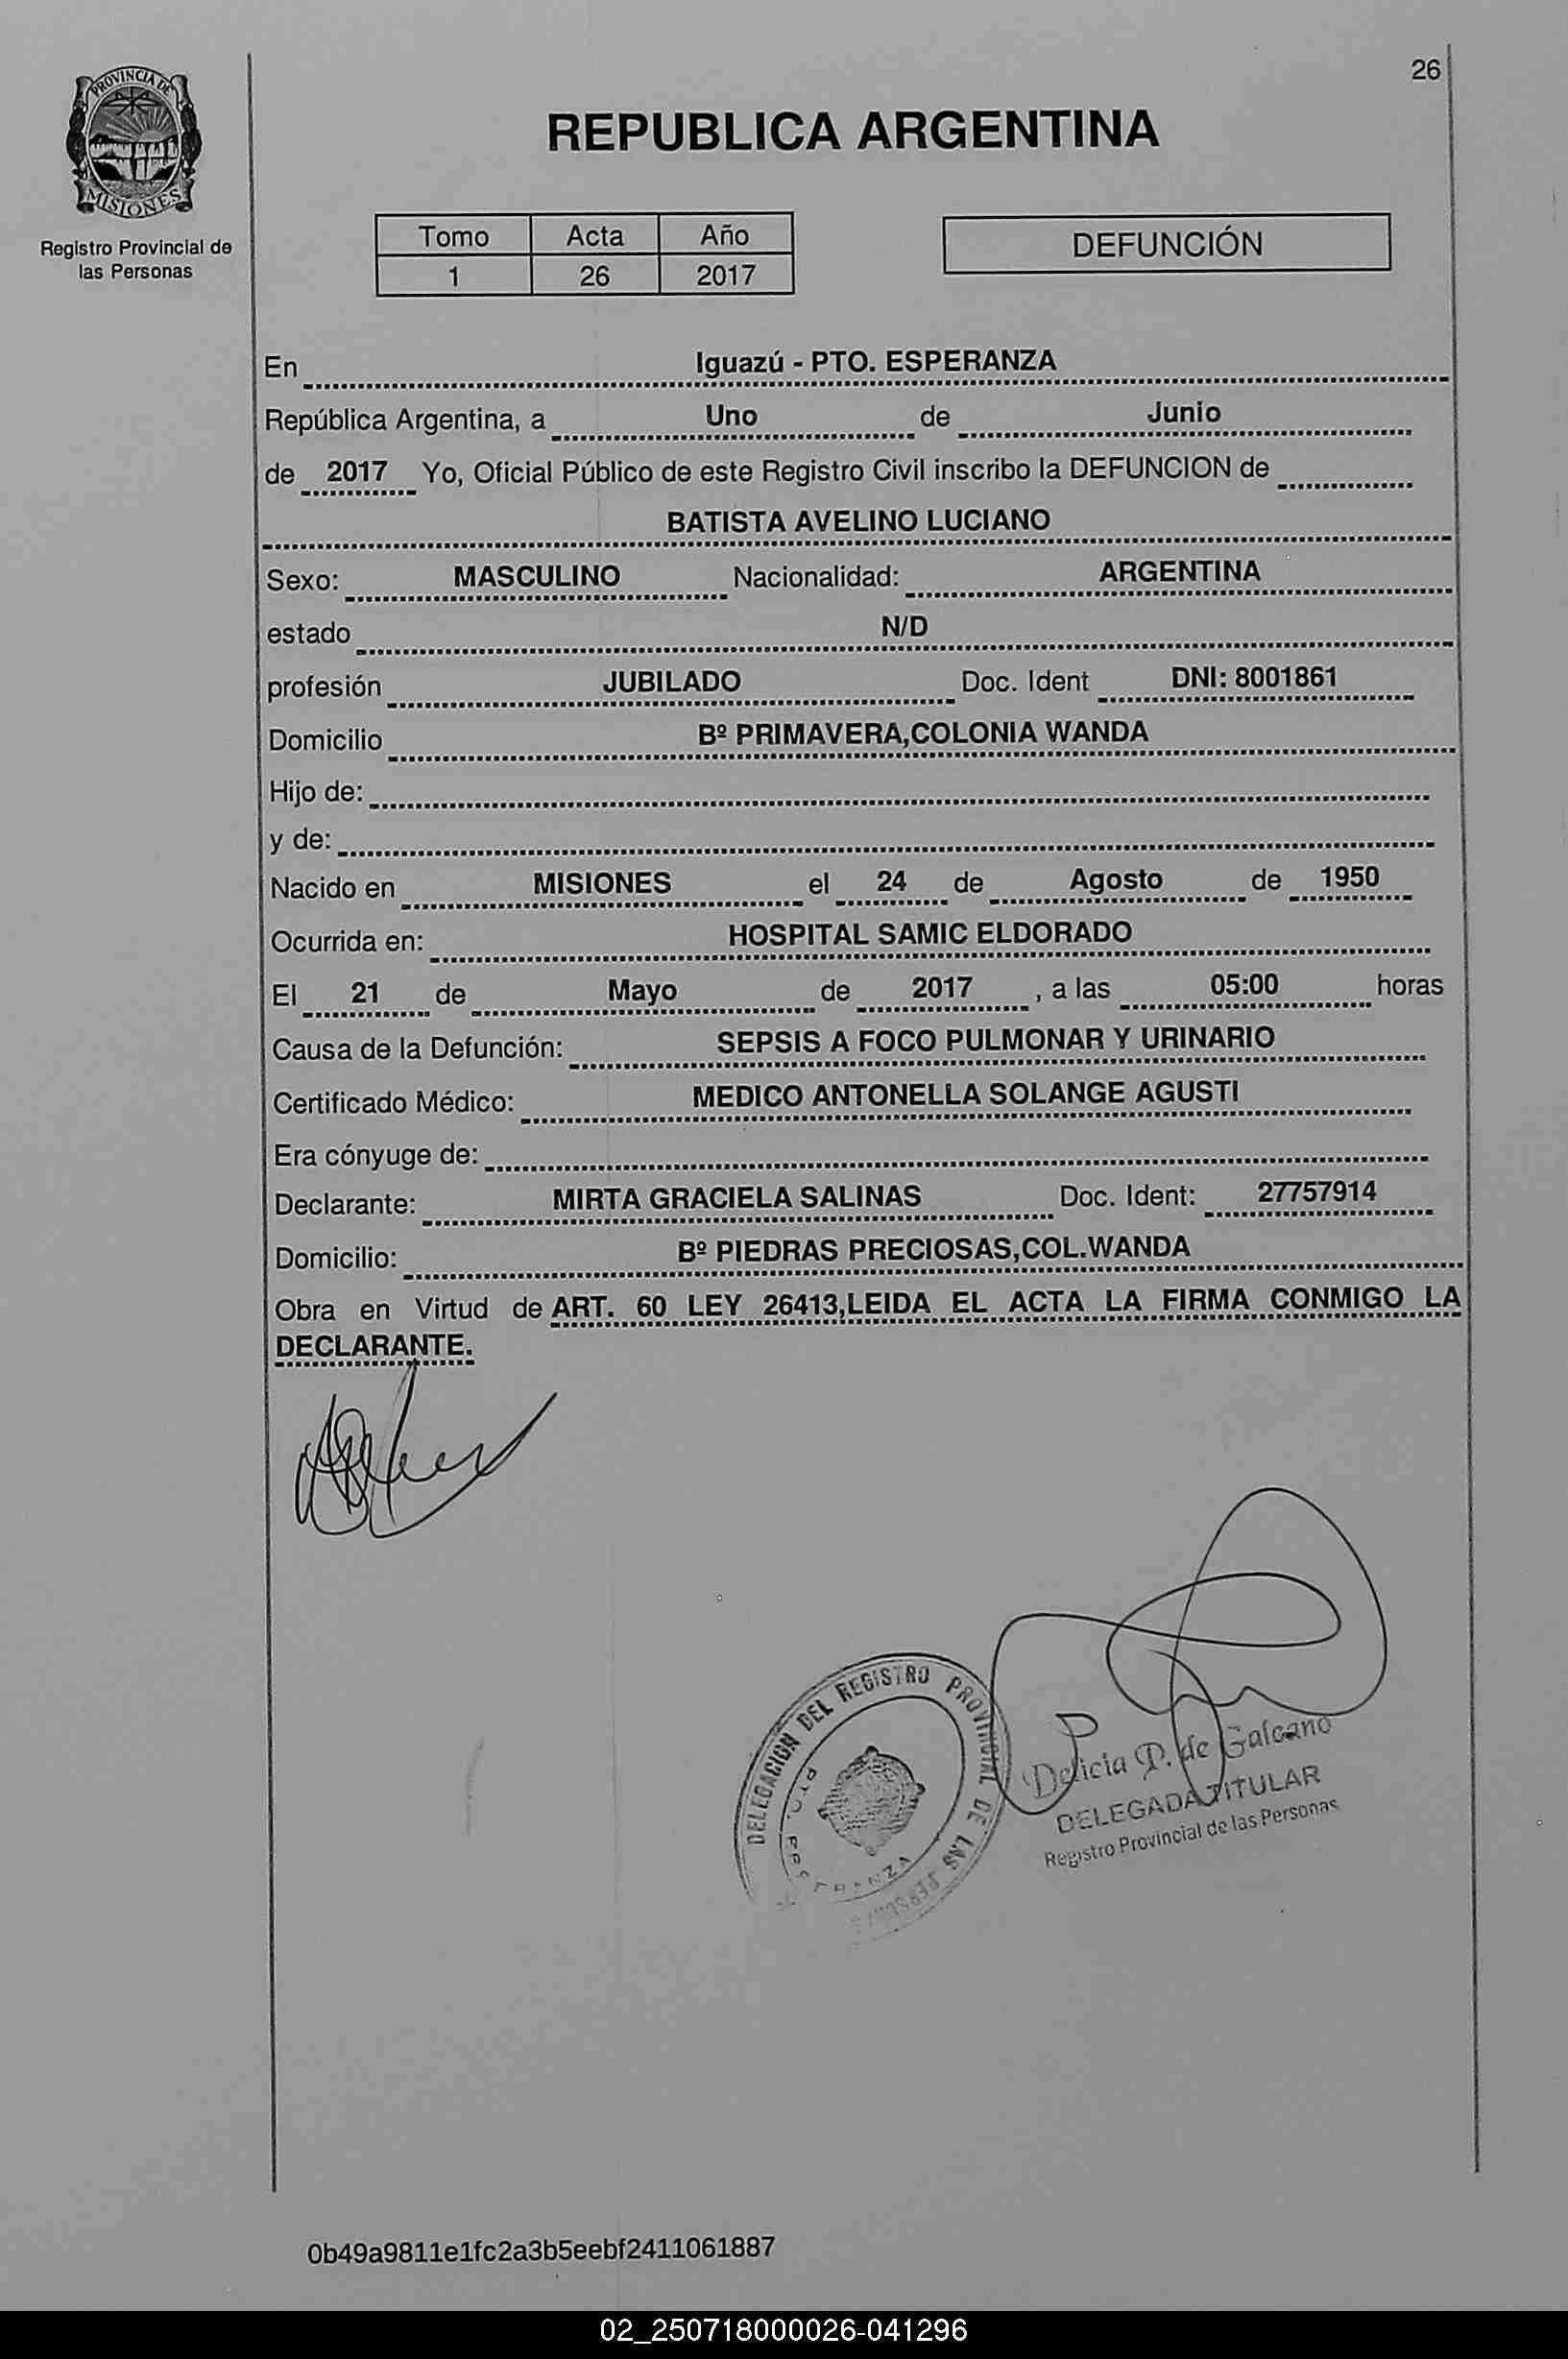 26
PROVINCIA DE
MISIONES
Registro Provincial de
las Personas
REPUBLICA ARGENTINA
Tomo Acta Año
1 26 2017
DEFUNCIÓN
En Iguazú - PTO. ESPERANZA
República Argentina, a Uno de Junio
de 2017 Yo, Oficial Público de este Registro Civil inscribo la DEFUNCION de
BATISTA AVELINO LUCIANO
Sexo: MASCULINO Nacionalidad: ARGENTINA
estado N/D
profesión JUBILADO Doc. Ident DNI: 8001861
Domicilio Bº PRIMAVERA,COLONIA WANDA
Hijo de:
y de:
Nacido en MISIONES el 24 de Agosto de 1950
Ocurrida en: HOSPITAL SAMIC ELDORADO
El 21 de Mayo de 2017 , a las 05:00 horas
Causa de la Defunción: SEPSIS A FOCO PULMONAR Y URINARIO
Certificado Médico: MEDICO ANTONELLA SOLANGE AGUSTI
Era cónyuge de:
Declarante: MIRTA GRACIELA SALINAS Doc. Ident: 27757914
Domicilio: Bº PIEDRAS PRECIOSAS,COL.WANDA
Obra en Virtud de ART. 60 LEY 26413,LEIDA EL ACTA LA FIRMA CONMIGO LA
DECLARANTE.
DELEGACION DEL REGISTRO PROVINCIAL DE LAS PERSONAS
PTO. ESPERANZA
Delicia P. de Galeano
DELEGADA TITULAR
Registro Provincial de las Personas
0b49a9811e1fc2a3b5eebf2411061887
02_250718000026-041296